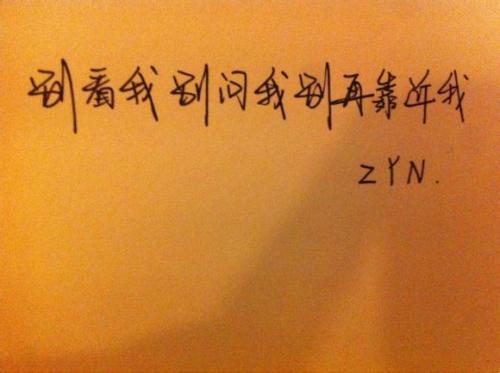 别看我 别问我 别再靠近我
ZYN.